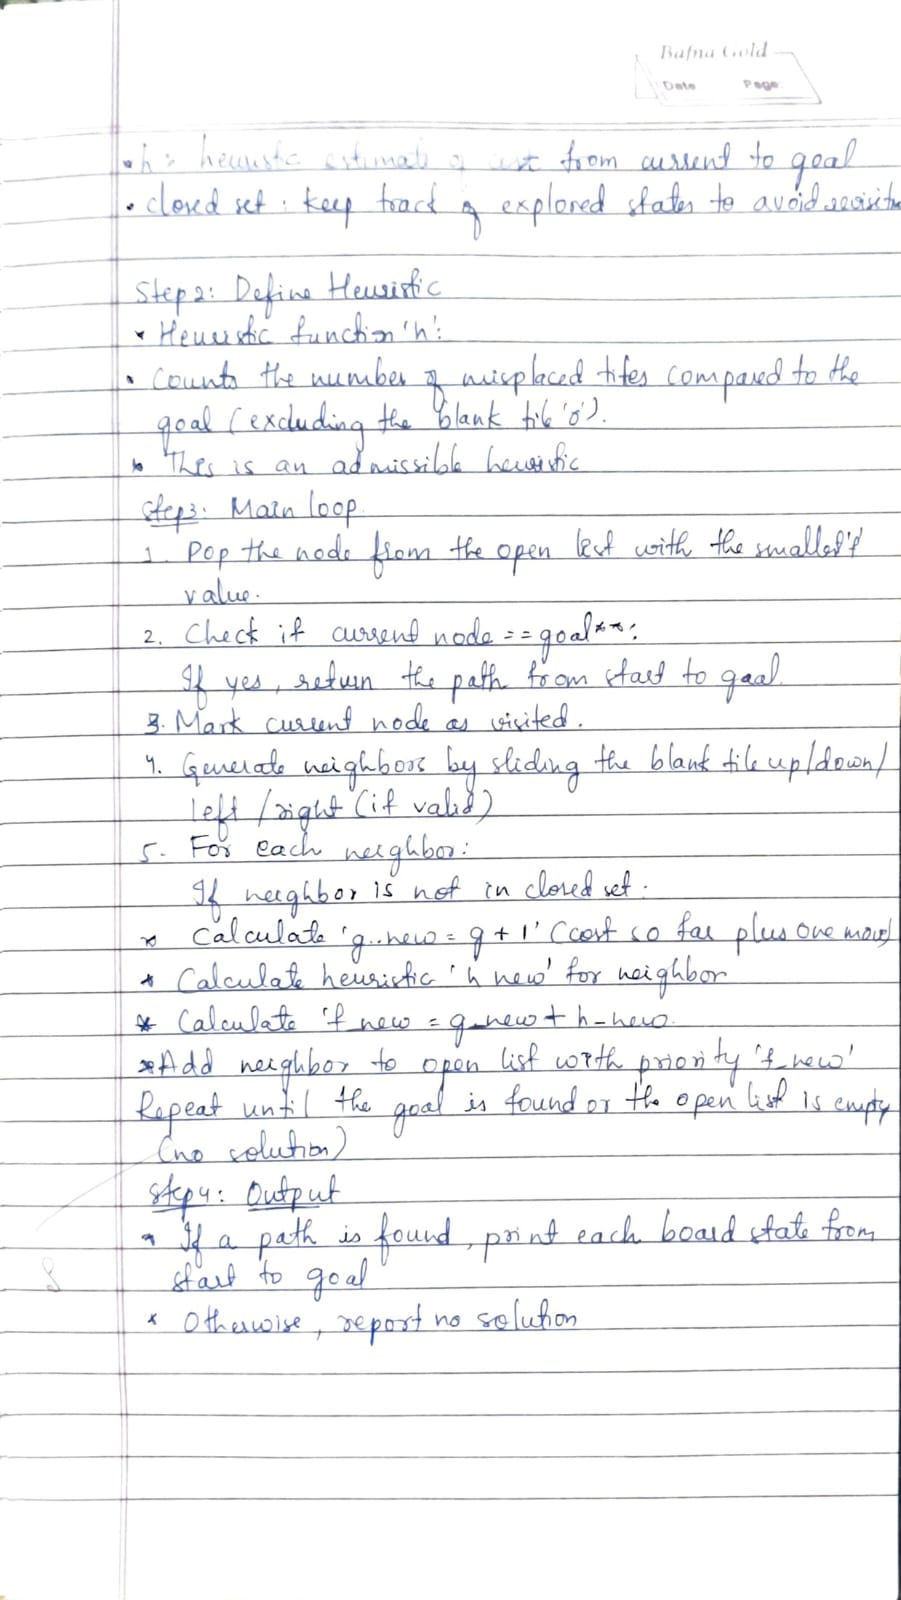 Bafna Gold
Date Page
• h : heuristic estimate of cost from current to goal
• closed set : keep track of explored states to avoid
Step 2: Define Heuristic
* Heuristic function 'h':
• Counts the number of misplaced tiles compared to the
goal (excluding the blank tile '0').
• This is an admissible heuristic
Step 3: Main loop
1. Pop the node from the open list with the smallest 'f'
value.
2. Check if current node == goal**:
If yes, return the path from start to goal
3. Mark current node as visited.
4. Generate neighbors by sliding the blank tile up/down/
left/right (if valid)
5. For each neighbor:
If neighbor is not in closed set:
* Calculate 'g_new = g + 1' (cost so far plus one move)
* Calculate heuristic 'h new' for neighbor
* Calculate 'f_new = g_new + h_new.
* Add neighbor to open list with priority 'f_new'
Repeat until the goal is found or the open list is empty
(no solution)
Step 4: Output
* If a path is found, print each board state from
start to goal
* Otherwise, report no solution